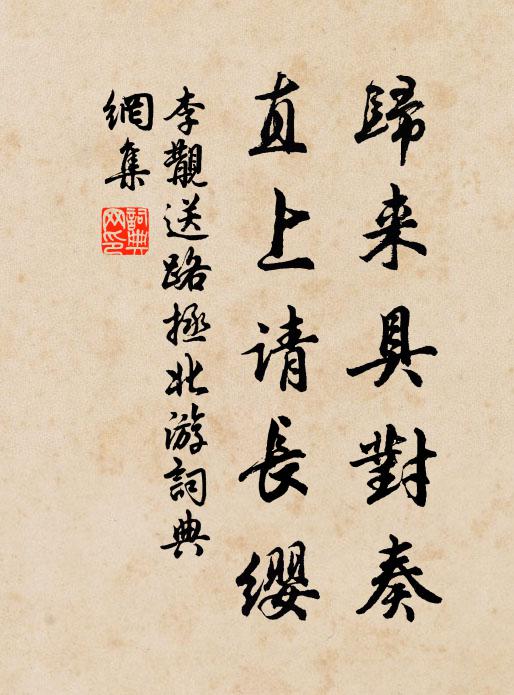 歸来具對奏
直上请長缨
李覯送路拯北游詞典
網集
詞典網印